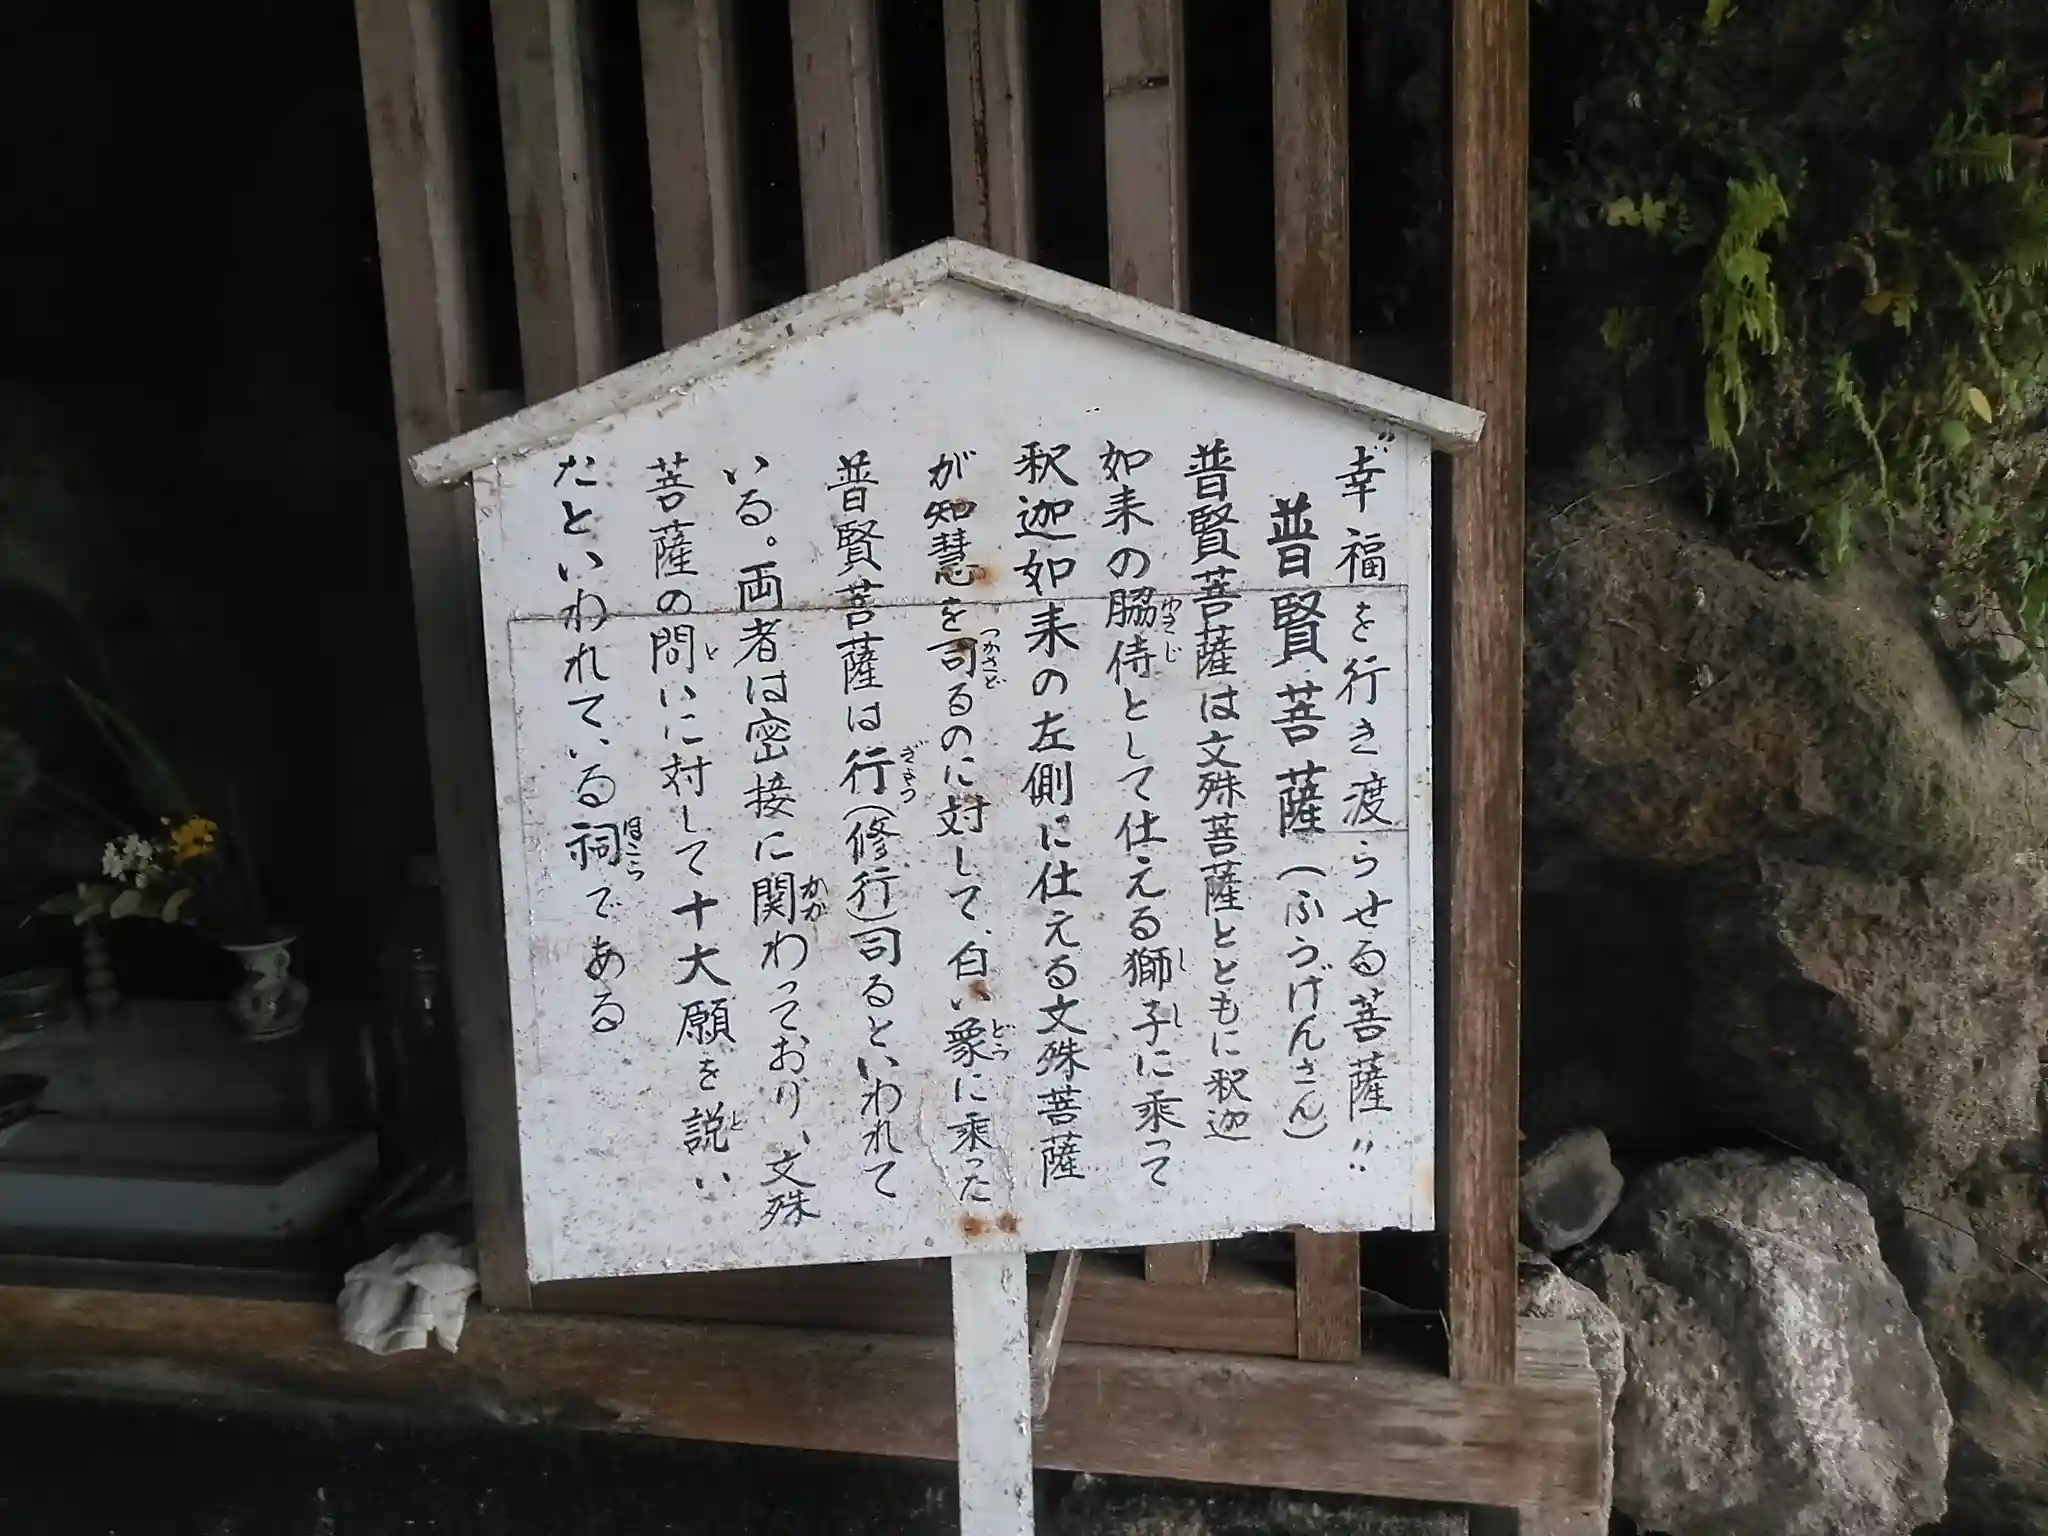 〝幸福を行き渡らせる菩薩〟
普賢菩薩(ふうげんさん)
普賢菩薩は文殊菩薩とともに釈迦
如来の脇侍として仕える獅子に乗って
釈迦如来の左側に仕える文殊菩薩
が知慧を司るのに対して、白い象に乗った
普賢菩薩は行(修行)司るといわれて
いる。両者は密接に関わっており、文殊
菩薩の問いに対して十大願を説い
たといわれている祠である